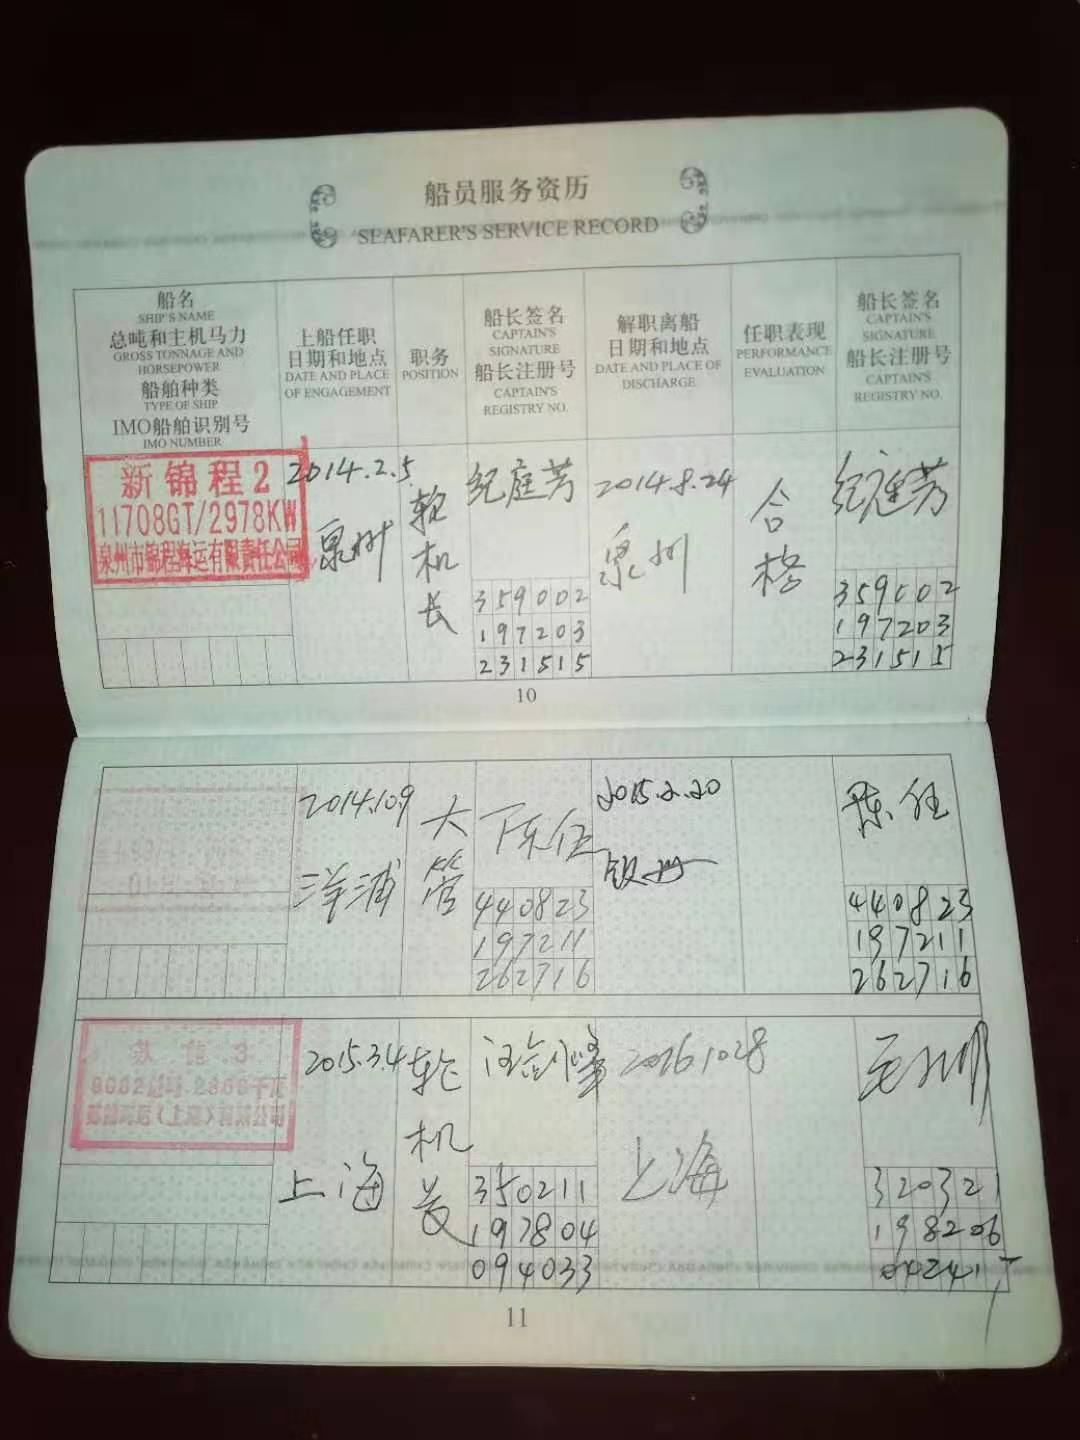 船员服务资历
SEAFARER'S SERVICE RECORD
船名
SHIP'S NAME
总吨和主机马力
GROSS TONNAGE AND
HORSEPOWER
船舶种类
TYPE OF SHIP
IMO船舶识别号
IMO NUMBER
上船任职
日期和地点
DATE AND PLACE
OF ENGAGEMENT
职务
POSITION
船长签名
CAPTAIN'S
SIGNATURE
船长注册号
CAPTAIN'S
REGISTRY NO.
解职离船
日期和地点
DATE AND PLACE OF
DISCHARGE
任职表现
PERFORMANCE
EVALUATION
船长签名
CAPTAIN'S
SIGNATURE
船长注册号
CAPTAIN'S
REGISTRY NO.
新锦程2
11708GT/2978KW
泉州市锦程海运有限责任公司
2014.2.5
泉州
轮机长
纪庭芳
359002
197203
231515
2014.8.24
泉州
合格
纪庭芳
359002
197203
231515
10
2014.10.9
洋浦
大管
陈伍
440823
197211
262716
2015.2.20
440823
197211
262716
2015.3.4
上海
轮机长
350211
197804
094033
上海
320321
198206
11